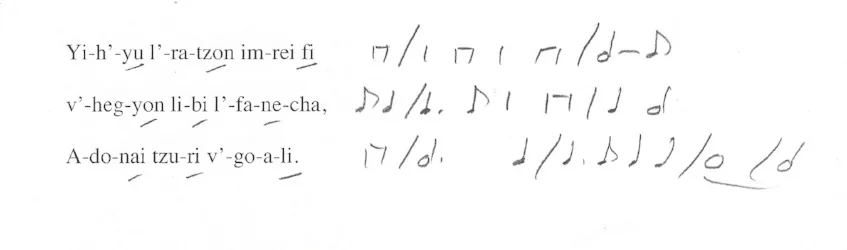 Yi-h'-yu l'-ra-tzon im-rei fi
v'-heg-yon li-bi l'-fa-ne-cha,
A-do-nai tzu-ri v'-go-a-li.